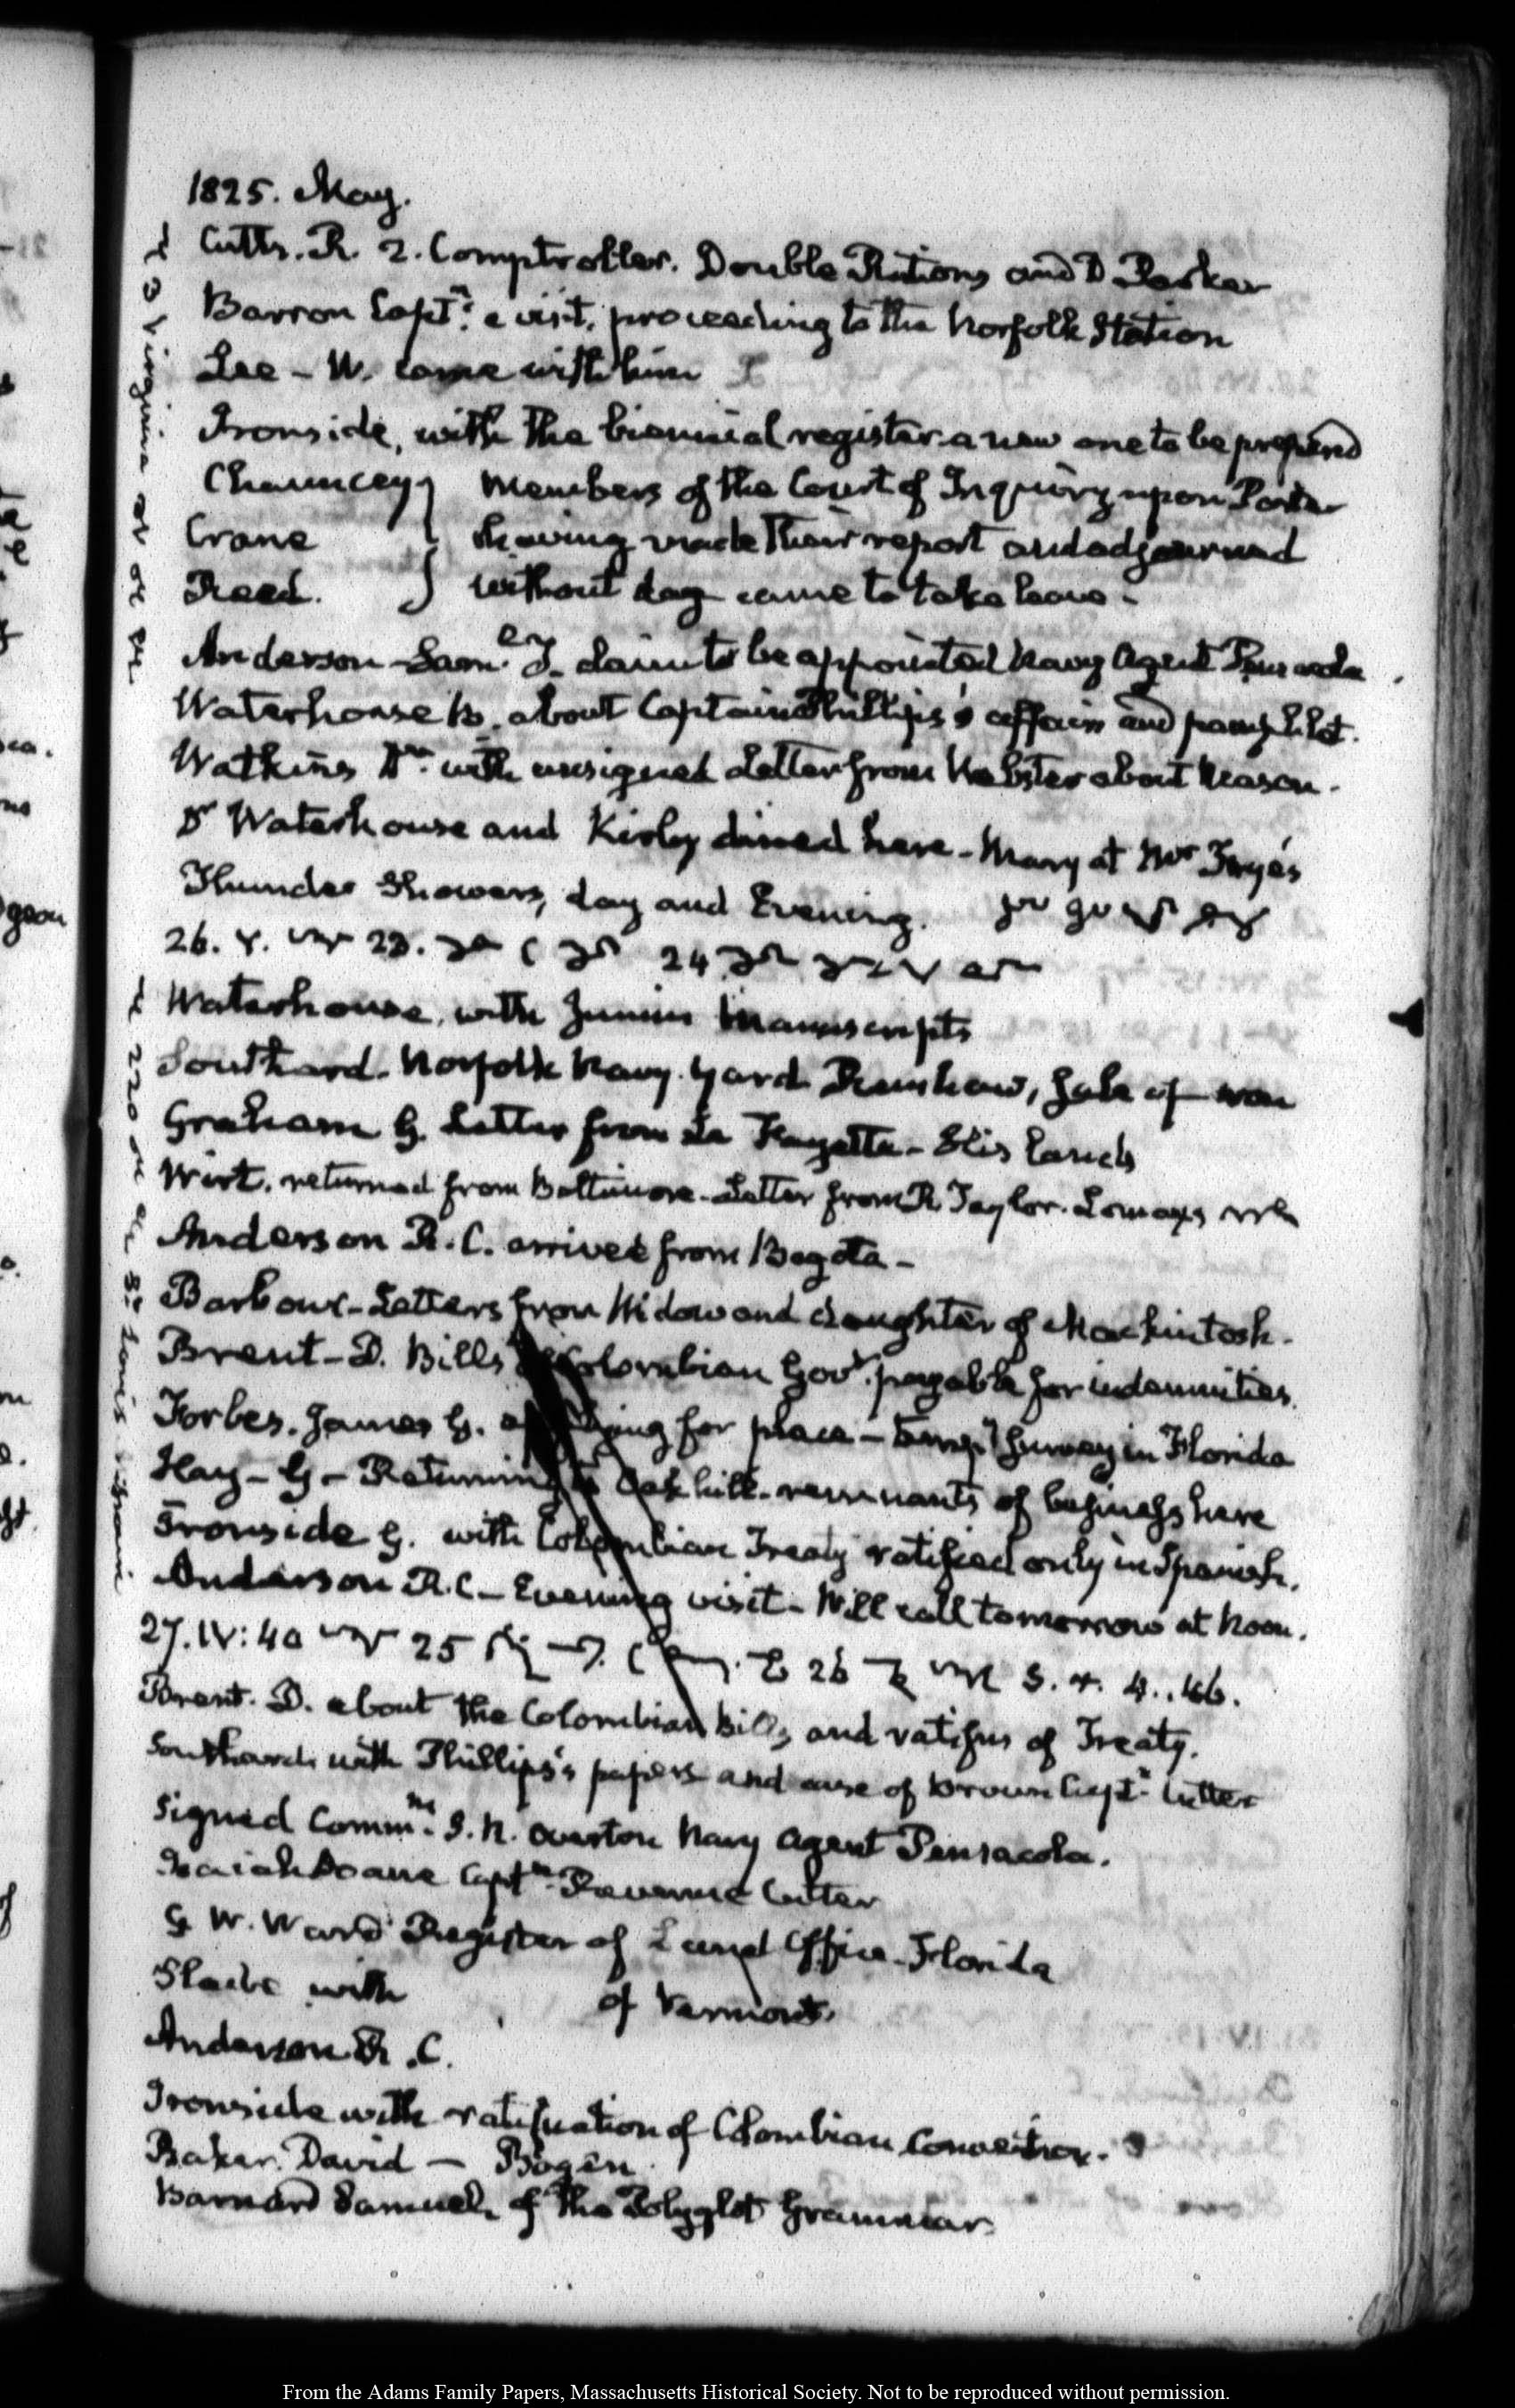 1825. May.
Cutts. R. 2. Comptroller. Double Rations and D Parker
Barron Captn: a visit, proceeding to the Norfolk Station
Lee - W. came with him
Ironside, with the biennial register a new one to be prepared
Chauncey } Members of the Court of Inquiry upon Porter
Crane } having made their report and adjourned
Reed. } without day came to take leave -
Anderson Saml. J. claim to be appointed Navy Agent Pensacola
Waterhouse B. about Captain Phillips's affair and pamphlet.
Watkins Dr. with unsigned Letter from Webster about Mason.
Dr Waterhouse and Kirby dined here - Mary at Mrs Frye's
Thunder Showers, day and Evening.
26. V. 23. 24
Waterhouse, with Junius Manuscripts
Southard. Norfolk Navy yard Renshaw, Sale of
Graham G. Letter from La Fayette - His Lands
Wirt. returned from Baltimore - Letter from R. Taylor. Lomax
Anderson R. C. arrived from Bogota -
Barbour - Letters from Widow and daughter of Mackintosh.
Brent - D. Bills of Colombian Govt. payable for indemnities.
Forbes. James G. applying for place - Survey in Florida
Hay - G - Returning to Oakhill - remnants of business here
Ironside G. with Colombian Treaty ratified only in Spanish.
Anderson R. C - Evening visit - Will call tomorrow at Noon.
27. IV: 40 25 26 S. 4. 46.
Brent. D. about the Colombian bills and of Treaty.
Southard with Phillips's papers and case of Brown Captn. Cutter
Signed Commns. S. R. Overton Navy Agent Pensacola.
Isaiah Doane Captn. Revenue Cutter
G W. Ward Register of Land Office - Florida
Slade with of Vermont.
Anderson R. C.
Ironside with ratification of Colombian Convention.
Baker. David - Bogen
Barnard Samuel, of the Polyglot Grammar
From the Adams Family Papers, Massachusetts Historical Society. Not to be reproduced without permission.